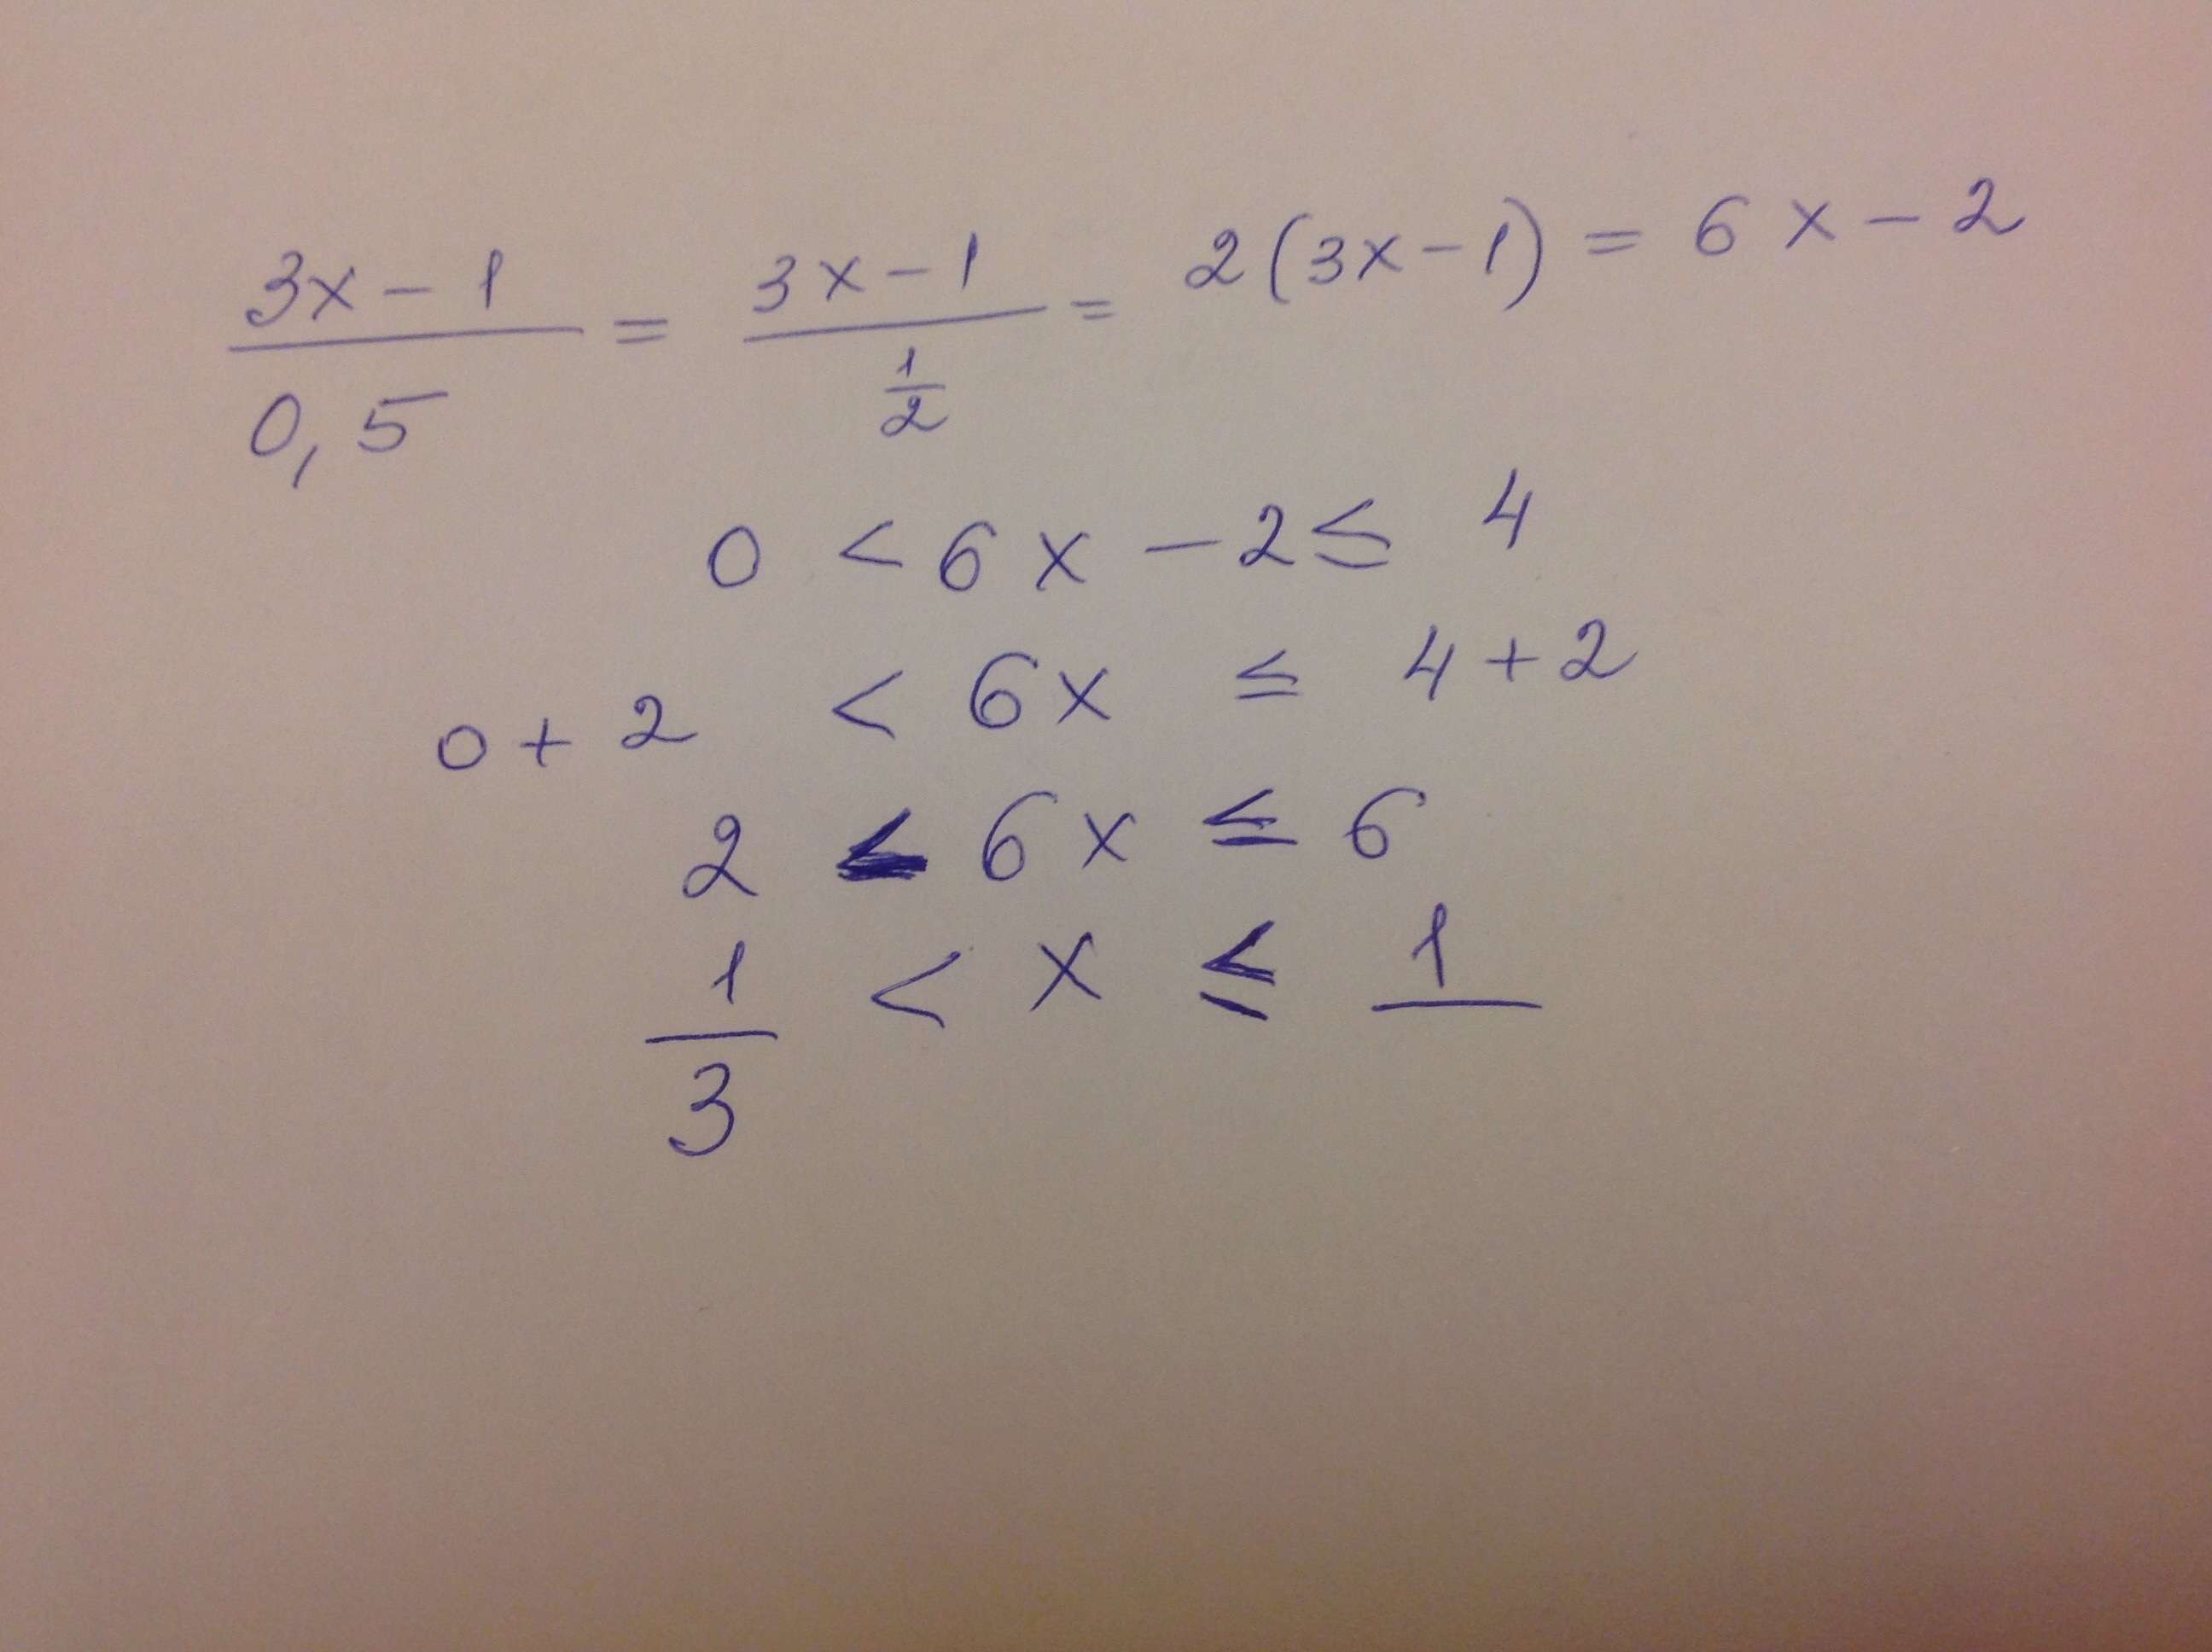 (3x-1)/(0,5) = (3x-1)/(1/2) = 2(3x-1) = 6x-2
0 < 6x - 2 ≤ 4
0 + 2 < 6x ≤ 4 + 2
2 < 6x ≤ 6
1/3 < x ≤ 1